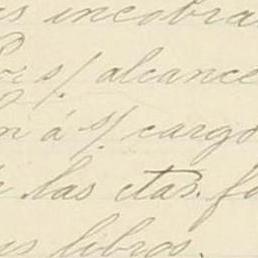 as incobra
Por s/. alcance
n á s/ cargo
las ctas. fa
us libros.